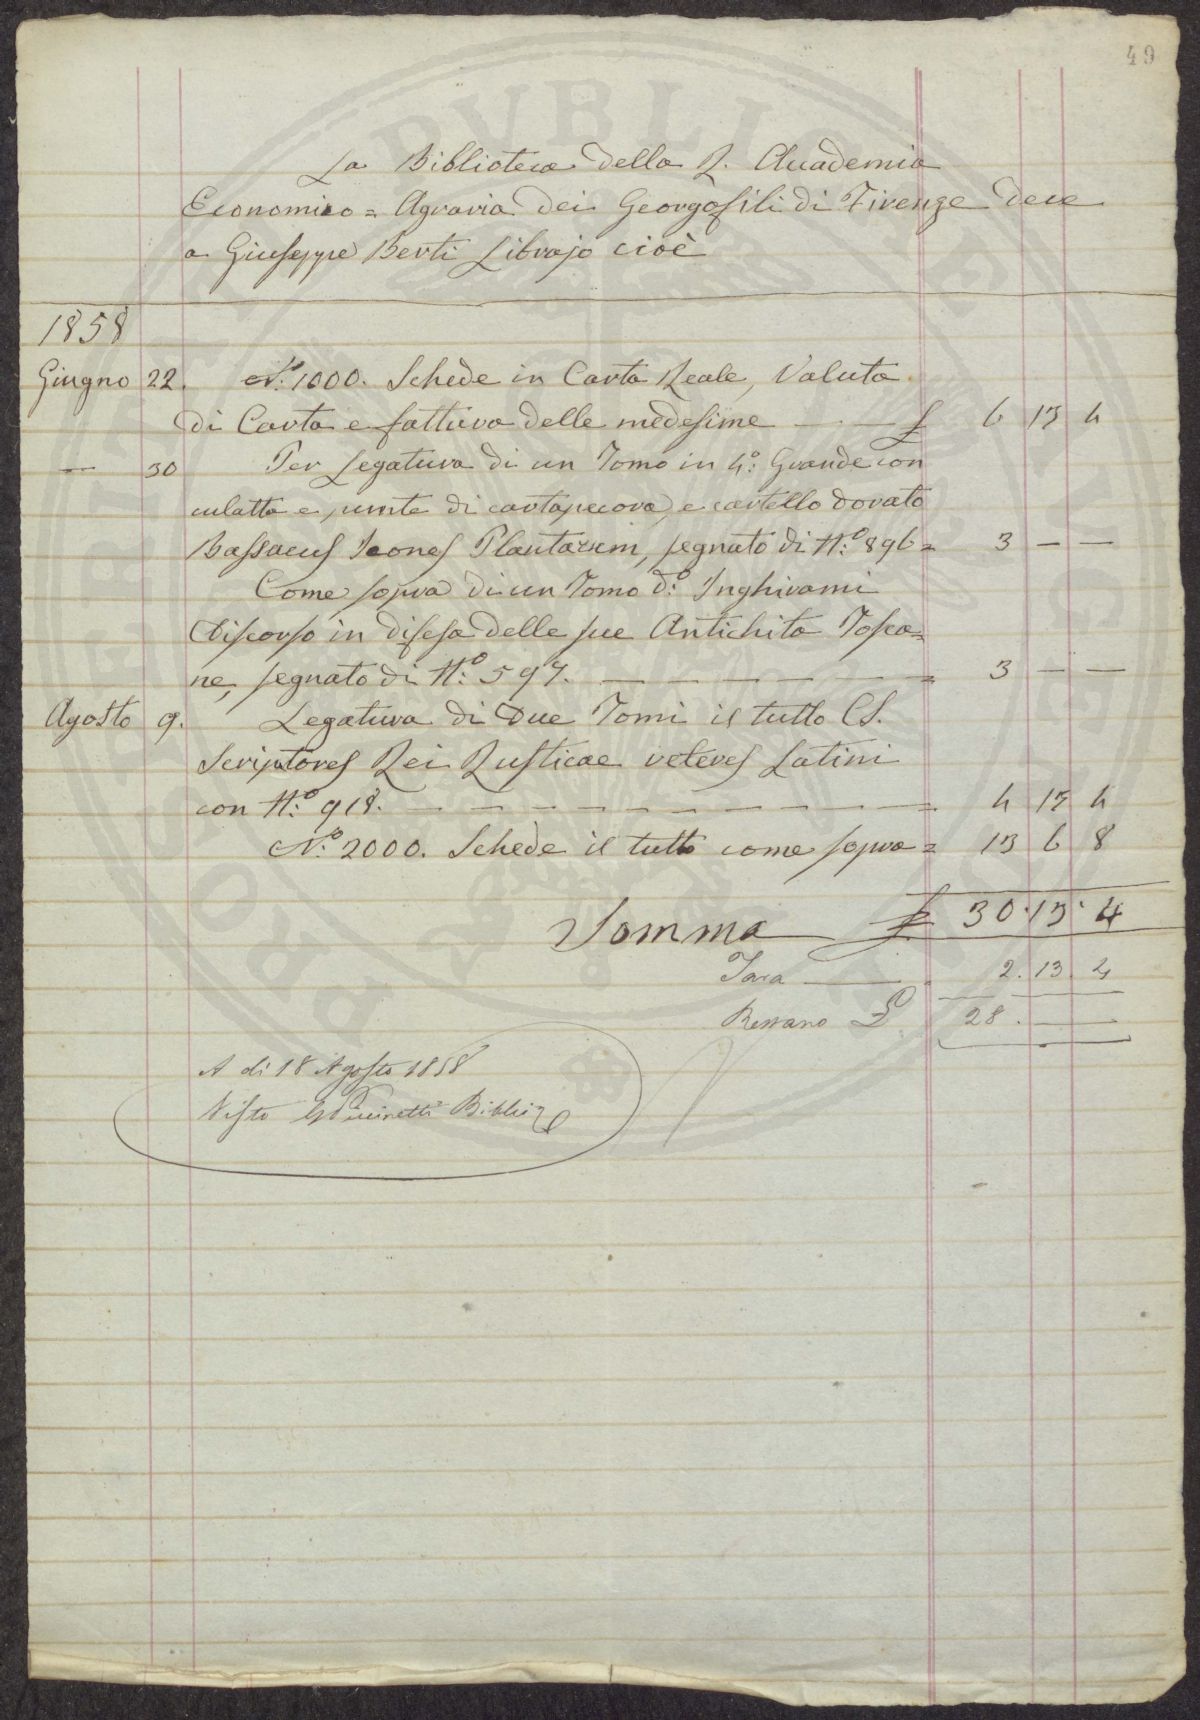 49
La Biblioteca della R. Accademia
Economico = Agraria dei Georgofili di Firenze deve
a Giuseppe Berti Librajo cioè
1858
Giugno 22. N.o 1000. Schede in Carta Reale, Valuta
di Carta e fattura delle medesime £ 6 13 4
— 30 Per Legatura di un Tomo in 4.o Grande con
culatta e punte di cartapecora, e cartello dorato
Bassaeus Icones Plantarum, segnato di N.o 896 = 3 — —
Come sopra di un Tomo d.o Inghirami
Discorso in difesa delle sue Antichita Tosca=
ne, segnato di N.o 597. — — — — — = 3 — —
Agosto 9. Legatura di Due Tomi il tutto CS.
Scriptores Rei Rusticae veteres Latini
con N.o 918. — — — — — — — = 4 13 4
N.o 2000. Schede il tutto come sopra = 13 6 8
Somma £ 30.13.4
Tara — 2.13.4
Restano £ 28. —
A di 18 Agosto 1858
Visto